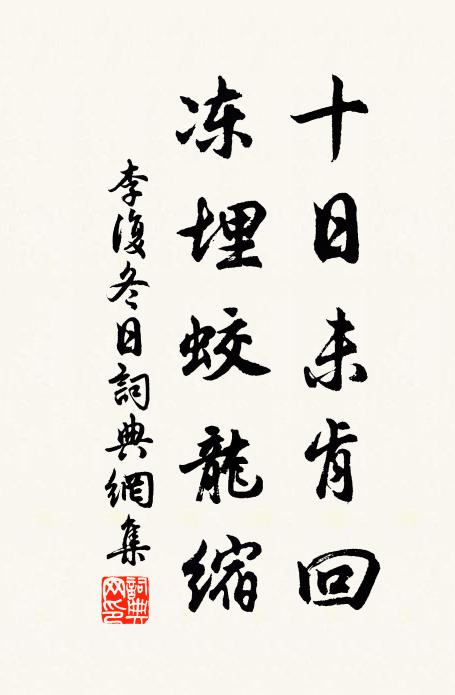 十日未肯回
冻埋蛟龍缩
李復冬日詞典網集
詞典网印